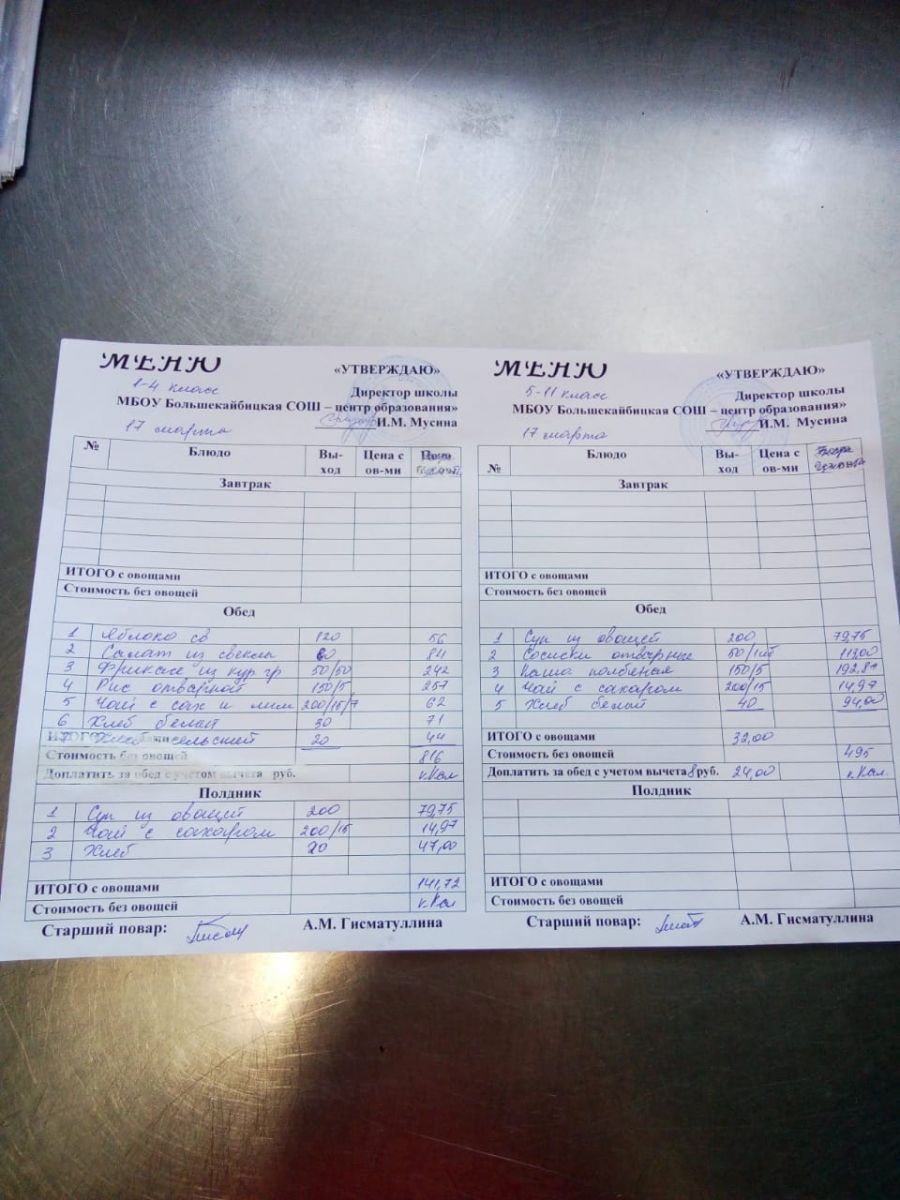 МЕНЮ
1-4 класс
«УТВЕРЖДАЮ»
Директор школы
МБОУ Большекайбицкая СОШ – центр образования»
И.М. Мусина
17 марта
№ Блюдо Вы-ход Цена с ов-ми
Завтрак
ИТОГО с овощами
Стоимость без овощей
Обед
1 Яблоко св 120 56
2 Салат из свеклы 60 84
3 Фрикасе из кур гр 50/50 242
4 Рис отварной 150/5 257
5 Чай с сах и лим 200/15/7 62
6 Хлеб белый 30 71
сельский 20 44
Стоимость без овощей 816
Доплатить за обед с учетом вычета руб. к.Кал
Полдник
1 Суп из овощей 200 79,75
2 Чай с сахаром 200/15 14,97
3 Хлеб 20 47,00
ИТОГО с овощами 141,72
Стоимость без овощей к.Кал
Старший повар: А.М. Гисматуллина
МЕНЮ
5-11 класс
«УТВЕРЖДАЮ»
Директор школы
МБОУ Большекайбицкая СОШ – центр образования»
И.М. Мусина
17 марта
№ Блюдо Вы-ход Цена с ов-ми
Завтрак
ИТОГО с овощами
Стоимость без овощей
Обед
1 Суп из овощей 200 79,75
2 Сосиски отварные 113,00
3 Каша полбеная 150/5 192,87
4 Чай с сахаром 200/15 14,97
5 Хлеб белый 40 94,00
ИТОГО с овощами 32,00
Стоимость без овощей 495
Доплатить за обед с учетом вычета 8 руб. 24,00 к.Кал
Полдник
ИТОГО с овощами
Стоимость без овощей
Старший повар: А.М. Гисматуллина